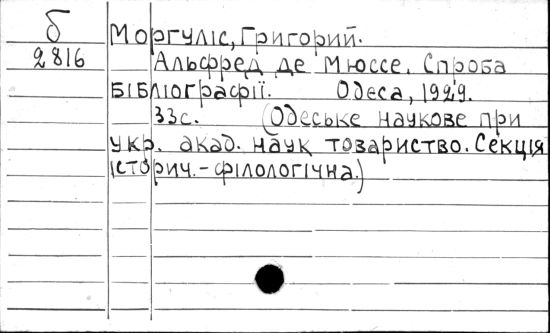 б
2816
Моргуліс, Григорий.
Альфред де Мюссе. Спроба
бібліографії. Одеса, 1929.
33с. (Одеське наукове при
укр. акад. наук товариство. Секція
історич.-філологічна.)